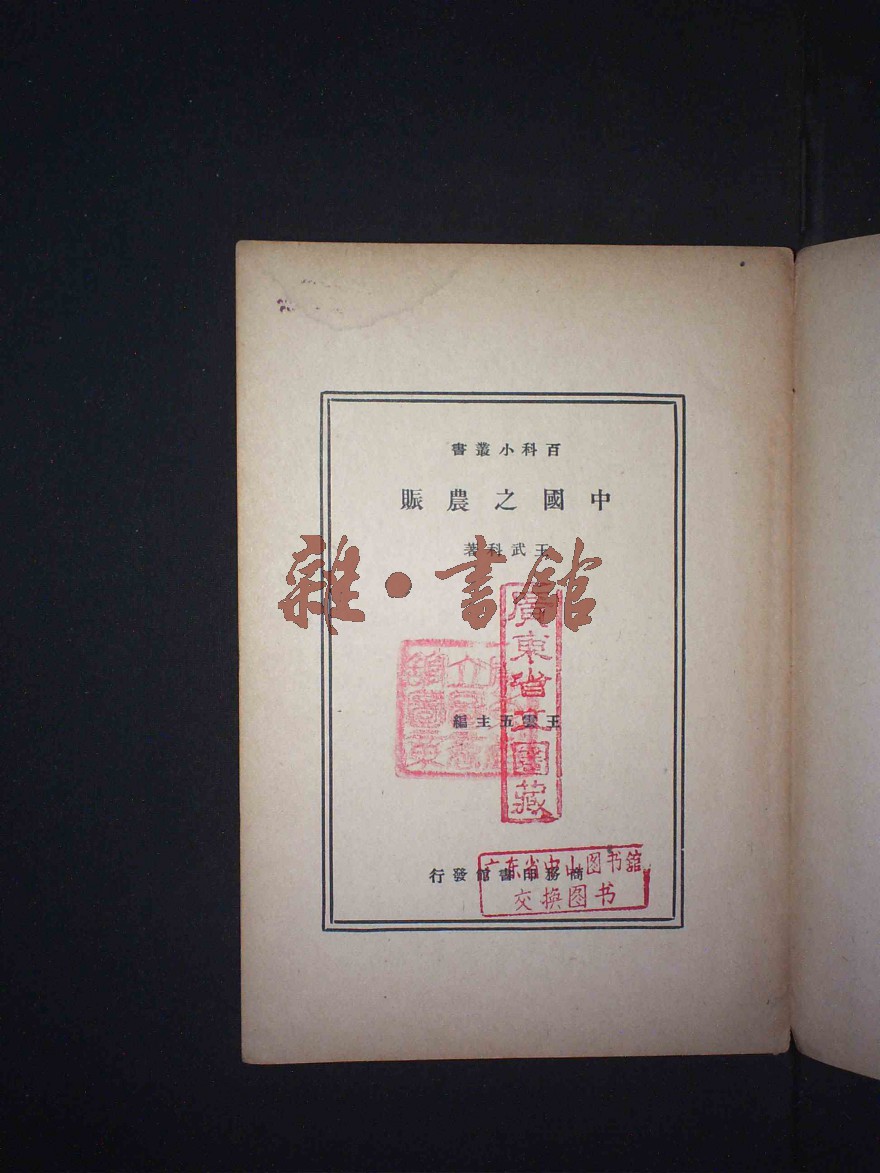 百科小叢書
中國之農賑
王武科著
雜·書館
王雲五主編
廣東省立圖藏
商務印書館發行
广东省中山图书舘
交换图书